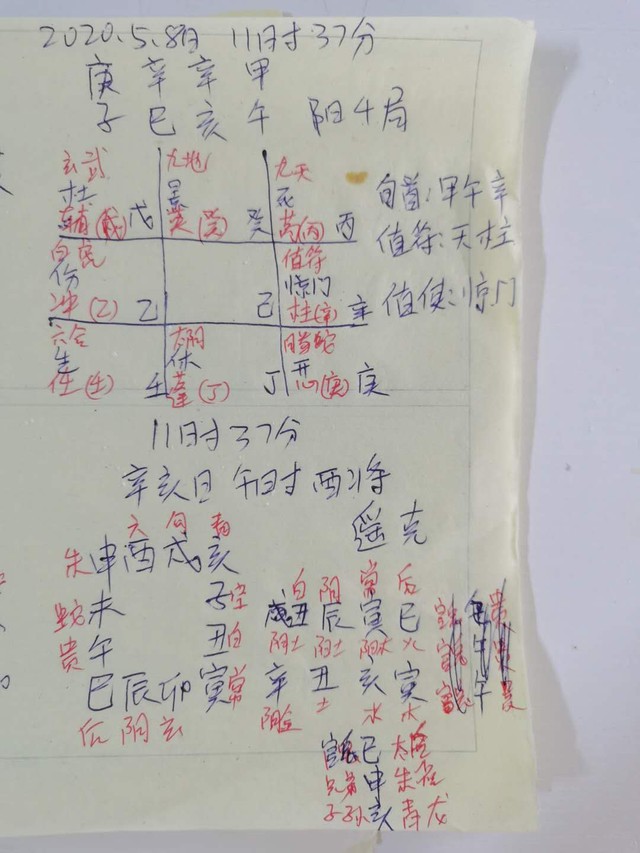 2020.5.8日 11时37分
庚 辛 辛 甲
子 巳 亥 午 阳4局
玄武 九地 九天
杜 景 死
辅(戊) 戊 英(癸) 癸 芮(丙) 丙
旬首:甲午辛
白虎 值符
值符:天柱
伤 惊门
冲(乙) 乙 己 柱(辛) 辛
值使:惊门
六合 太阴 螣蛇
生 休 开
任(壬) 壬 蓬(丁) 丁 心(庚) 庚
11时37分
辛亥日 午时 酉将
六 勾 青
遥克
朱 申 酉 戌 亥
白 阴 常 后
蛇 未 子 空
丑 辰 寅 巳
贵 午 丑 白
阴土 阳土 阳木 火
巳 辰 卯 寅 常
辛 丑 亥 寅
后 阴 玄
阴金 土 水 木
官鬼 巳
兄弟 申
子孙 亥 青龙